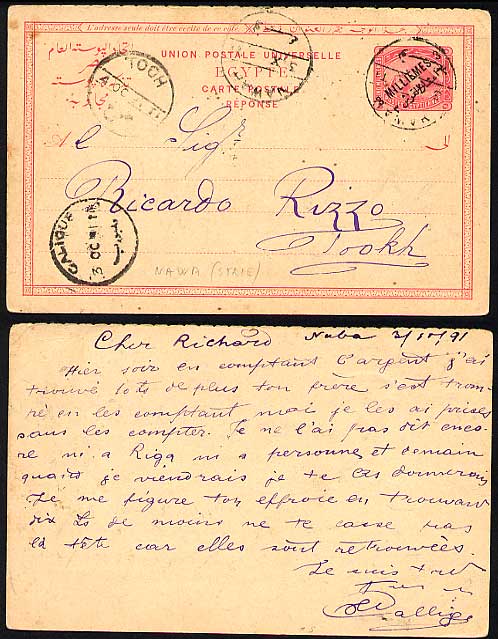 L'adresse seule doit être écrite de ce côté.
UNION POSTALE UNIVERSELLE
EGYPTE
CARTE POSTALE
RÉPONSE
MILLIEMES
TOOCH
4 OC
NAVA
A
al Sigr
الى
Ricardo Rizzo
Tookh
GALIOUB
3 OC 91
NAWA (SYRIE)
Cher Richard Nuba 3/10/91
Hier soir en comptant l'argent j'ai
trouvé 10 £s de plus ton frère s'est trom-
pé en les comptant moi je les ai prises
sans les compter. Je ne l'ai pas dit enco-
re ni a Riga ni a personne et demain
quand je viendrais je te les donnerai
Je me figure ton effroie en trouvant
dix £s de moins ne te casse pas
la tête car elles sont retrouvées.
Je suis tout